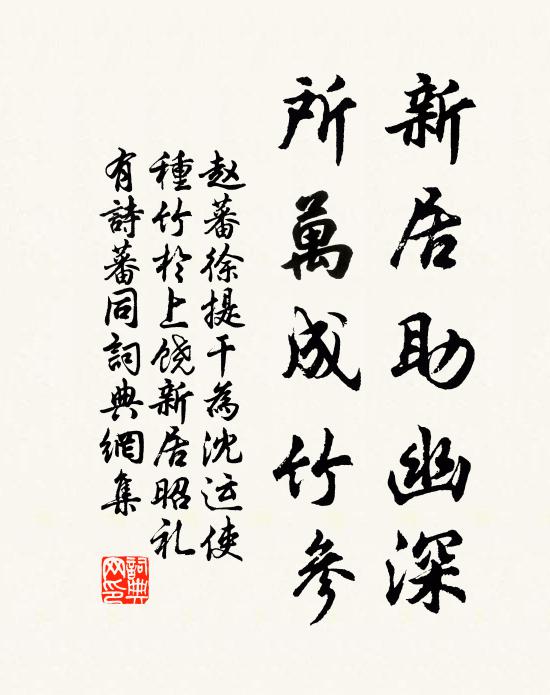 新居助幽深
所萬成竹參
赵蕃徐提干為沈运使
種竹於上饶新居昭礼
有詩蕃同詞典網集
詞典网印